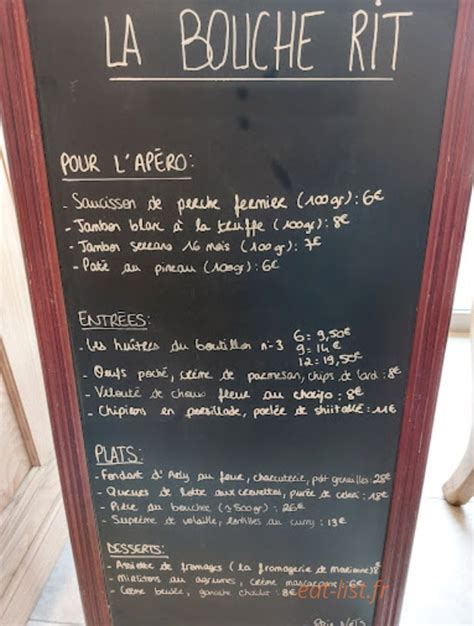 LA BOUCHE RIT
POUR L'APÉRO:
- Saucisson de porche fermier (100gr): 6€
- Jambon blanc à la truffe (100gr): 8€
- Jambon serrano 16 mois (100gr): 7€
- Paté au pineau (100gr): 6€
ENTRÉES:
- Les huîtres du bouteillon n-3
6 = 9,50€
9 = 14€
12 = 19,50€
- Oeufs poché, crème de parmesan, chips de lard: 8€
- Velouté de choux fleur au chorizo: 8€
- Chipirons en persillade, poelée de shiitaké: 11€
PLATS:
- Fondant d'Arly au four, charcuterie, pdt grenailles: 25€
- Queues de lotte aux crevettes, purée de celeri: 18€
- Pièce du boucher (3500gr): 26€
- Suprème de volaille, lentilles au curry: 13€
DESSERTS:
- Assiette de fromages (la fromagerie de Marianne) 8€
- Mirlitons au agrumes, crème mascarpone: 6€
- Crème brulée, ganache chocolat: 8€
Prix NETS
eat-list.fr